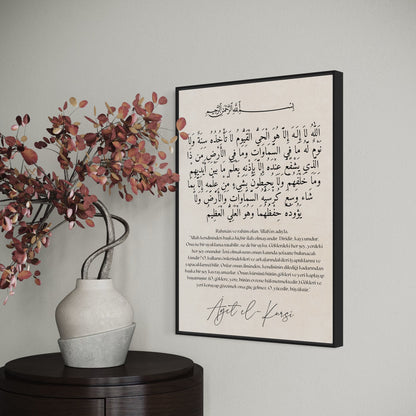 بسم الله الرحمن الرحيم
الله لا إله إلا هو الحي القيوم لا تأخذه سنة ولا
نوم له ما في السماوات وما في الأرض من ذا
الذي يشفع عنده إلا بإذنه يعلم ما بين أيديهم
وما خلفهم ولا يحيطون بشيء من علمه إلا بما
شاء وسع كرسيه السماوات والأرض ولا
يؤوده حفظهما وهو العلي العظيم
Rahman ve rahim olan Allah'ın adıyla.
"Allah kendisinden başka hiçbir ilah olmayandır. Diridir, kayyumdur.
Onu ne bir uyuklama tutabilir, ne de bir uyku. Göklerdeki her şey, yerdeki
her şey onundur. İzni olmaksızın onun katında şefaatte bulunacak
kimdir? O, kulların önlerindekileri ve arkalarındakileri (yaptıklarını ve
yapacaklarını) bilir. Onlar onun ilminden, kendisinin dilediği kadarından
başka bir şey kavrayamazlar. Onun kürsüsü bütün gökleri ve yeri kaplayıp
kuşatmıştır. (O, göklere, yere, bütün evrene hükmetmektedir.) Gökleri ve
yeri koruyup gözetmek ona güç gelmez. O, yücedir, büyüktür."
Ayet el-Kürsi